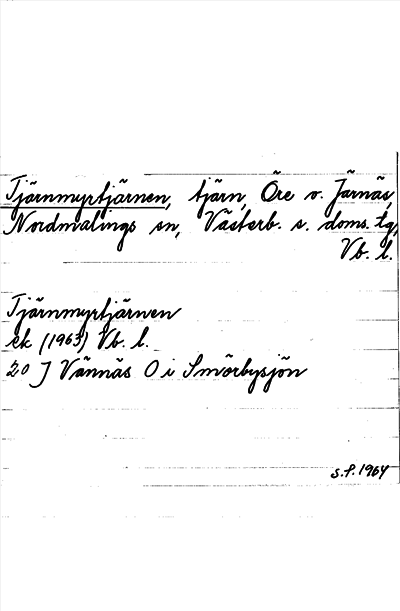 Tjärnmyrtjärnen, tjärn, Öre o. Järnäs,
Nordmalings sn, Västerb. s. doms. tg,
Vb. l.
Tjärnmyrtjärnen
ek (1963) Vb. l.
20 J Vännäs O i Smörbysjön
S.F. 1964